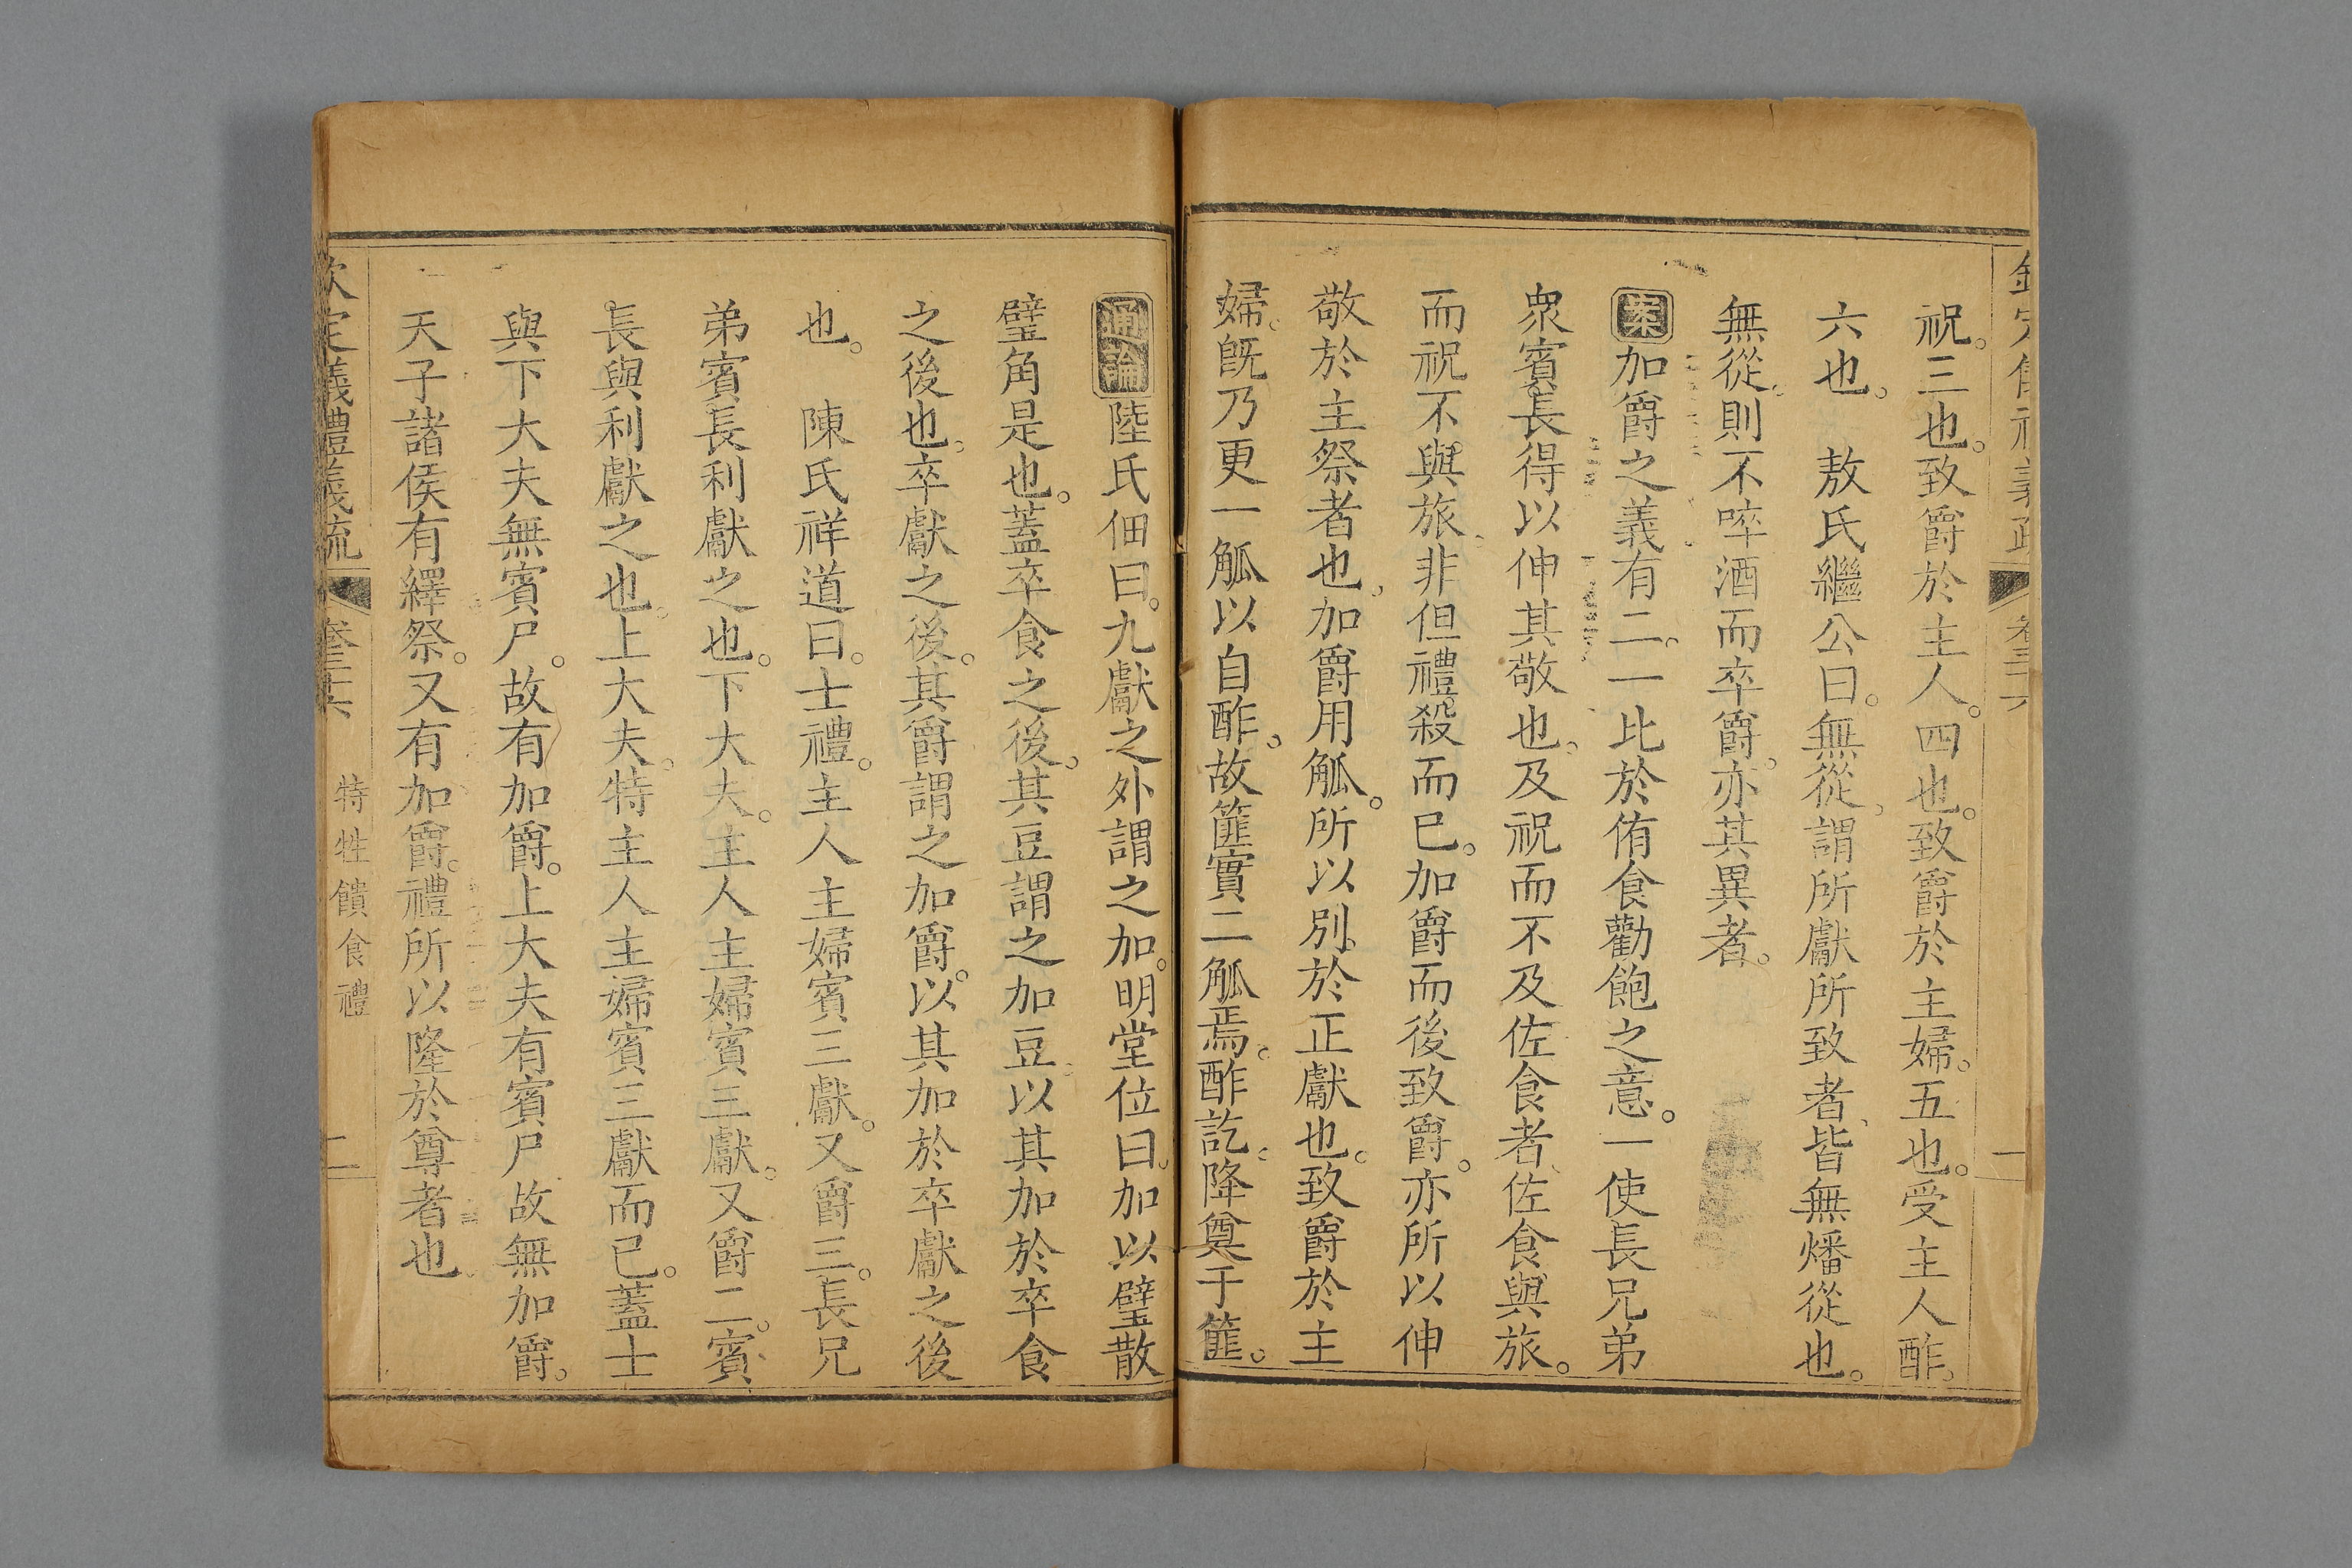 祝。三也。致爵於主人。四也。致爵於主婦。五也。受主人酢。
六也。　敖氏繼公曰。無從、謂所獻所致者、皆無燔從也。
無從、則不啐酒而卒爵。亦其異者。
案加爵之義有二。一比於侑食勸飽之意。一使長兄弟
衆賓長得以伸其敬也。及祝而不及佐食者、佐食與旅。
而祝不與旅、非但禮殺而已。加爵而後致爵。亦所以伸
敬於主祭者也、加爵用觚。所以別於正獻也。致爵於主
婦。旣乃更一觚以自酢、故篚實二觚焉。酢訖、降奠于篚。
通論陸氏佃曰。九獻之外謂之加。明堂位曰。加以璧散
璧角是也。蓋卒食之後。其豆謂之加豆以其加於卒食
之後也。卒獻之後。其爵謂之加爵。以其加於卒獻之後
也。　陳氏祥道曰。士禮。主人主婦賓三獻。又爵三。長兄
弟賓長利獻之也。下大夫。主人主婦賓三獻。又爵二。賓
長與利獻之也。上大夫。特主人主婦賓三獻而已。蓋士
與下大夫無賓尸。故有加爵。上大夫有賓尸故無加爵。
天子諸侯有繹祭。又有加爵。禮所以隆於尊者也
欽定儀禮義疏　卷三十六　特牲饋食禮　二